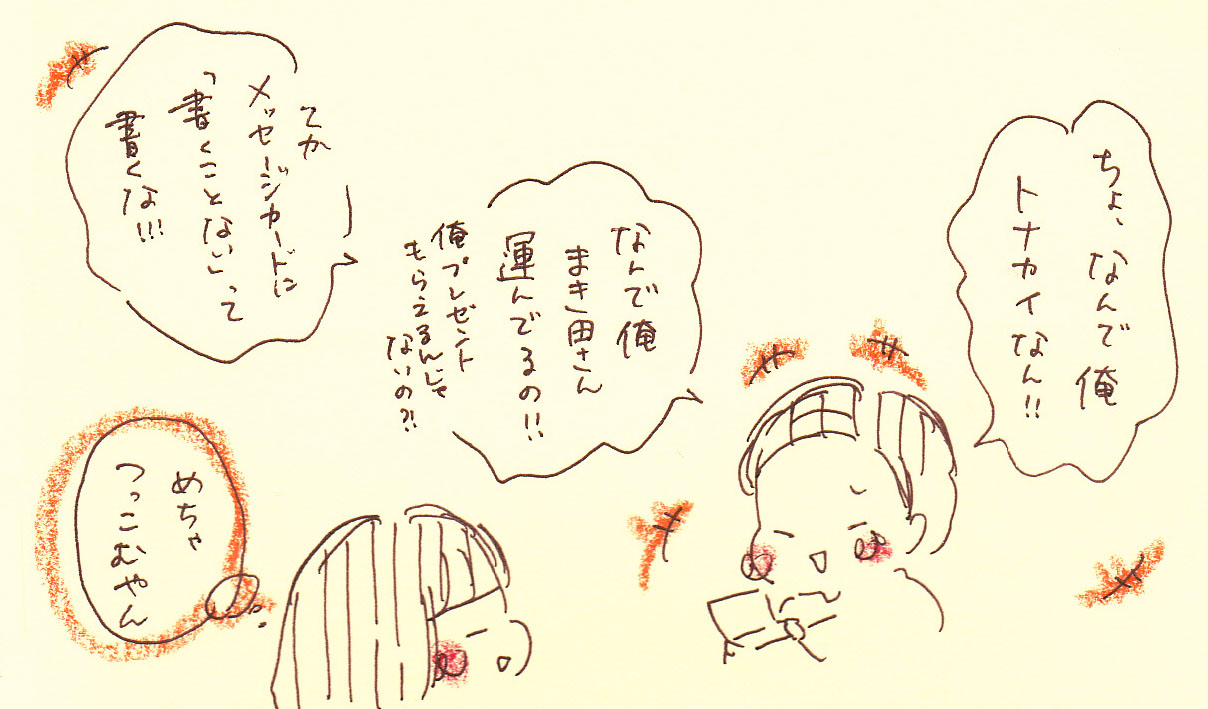 ちょ、なんで俺
トナカイなん!!
なんで俺
まき田さん
運んでるの!!
俺プレゼント
もらえるんじゃ
ないの?!
てか
メッセージカードに
「書くことない」って
書くな!!!
めちゃ
つっこむやん